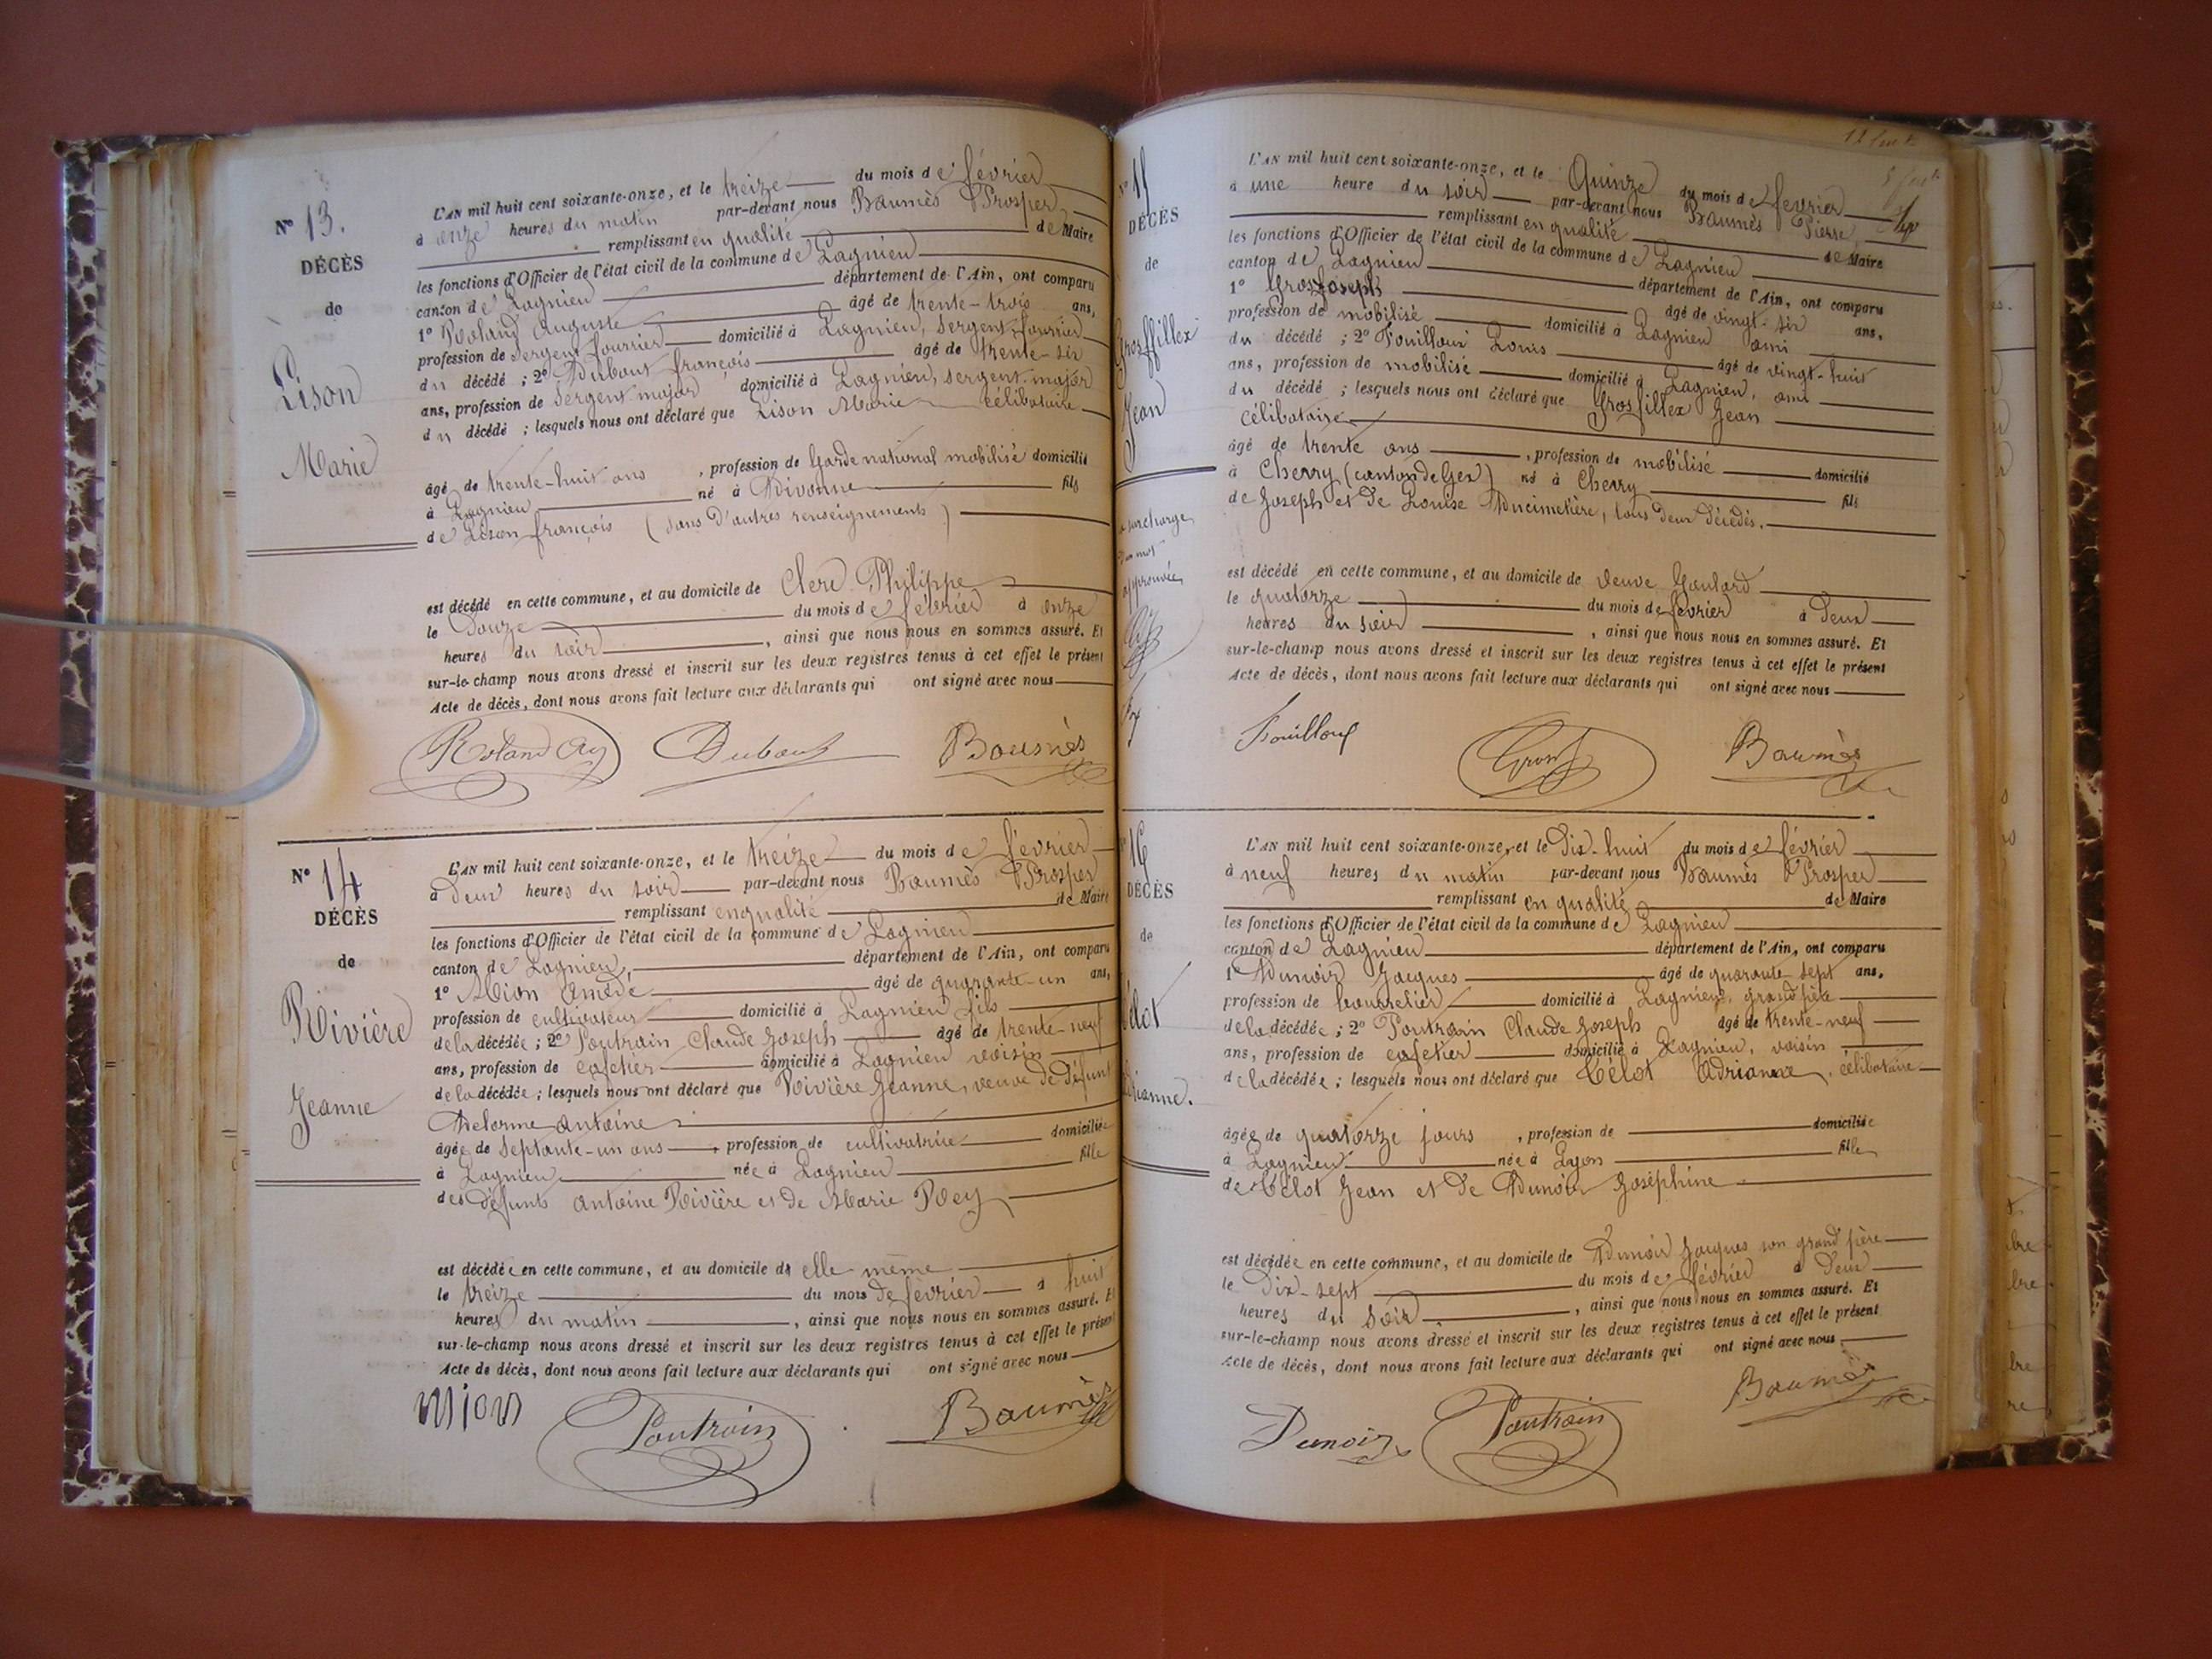 N° 13.
DÉCÈS
de
Lison
Marie
L'AN mil huit cent soixante-onze, et le treize du mois de février
à onze heures du matin par-devant nous Baumès Prosper
remplissant en qualité de Maire
les fonctions d'Officier de l'état civil de la commune de Lagnieu
canton de Lagnieu département de l'Ain, ont comparu
1° Roland Auguste âgé de trente-trois ans,
profession de Sergent fourrier domicilié à Lagnieu, Sergent fourrier
du décédé ; 2° Dubout françois âgé de trente-six
ans, profession de Sergent major domicilié à Lagnieu, sergent major
du décédé ; lesquels nous ont déclaré que Lison Marie célibataire
âgé de trente-huit ans , profession de Garde national mobilisé domicilié
à Lagnieu né à Divonne fils
de Lison françois (sans d'autres renseignements)
est décédé en cette commune, et au domicile de Clerc Philippe
le Douze du mois de février à onze
heures du soir , ainsi que nous nous en sommes assuré. Et
sur-le-champ nous avons dressé et inscrit sur les deux registres tenus à cet effet le présent
Acte de décès, dont nous avons fait lecture aux déclarants qui ont signé avec nous
Roland Aug Dubout Baumès
N° 14
DÉCÈS
de
Rivière
Jeanne
L'AN mil huit cent soixante-onze, et le treize du mois de février
à Deux heures du soir par-devant nous Baumès Prosper
remplissant en qualité de Maire
les fonctions d'Officier de l'état civil de la commune de Lagnieu
canton de Lagnieu, département de l'Ain, ont comparu
1° Mion Amédé âgé de quarante-un ans,
profession de cultivateur domicilié à Lagnieu fils
de la décédée ; 2° Poutrain Claude Joseph âgé de trente-neuf
ans, profession de cafetier domicilié à Lagnieu voisin
de la décédée ; lesquels nous ont déclaré que Rivière Jeanne, veuve de défunt
Delorme Antoine
âgée de septante-un ans , profession de cultivatrice domiciliée
à Lagnieu née à Lagnieu fille
des défunts Antoine Rivière et de Marie Rey
est décédée en cette commune, et au domicile de elle-même
le treize du mois de février à huit
heures du matin , ainsi que nous nous en sommes assuré. Et
sur-le-champ nous avons dressé et inscrit sur les deux registres tenus à cet effet le présent
Acte de décès, dont nous avons fait lecture aux déclarants qui ont signé avec nous
Mion Poutrain Baumès
N° 15
DÉCÈS
de
Grosfillex
Jean
surcharge
d'un mot
approuvée
L'AN mil huit cent soixante-onze, et le Quinze du mois de février
à une heure du soir par-devant nous Baumès Pierre
remplissant en qualité de Maire
les fonctions d'Officier de l'état civil de la commune de Lagnieu
canton de Lagnieu département de l'Ain, ont comparu
1° Gros Joseph âgé de vingt-six ans,
profession de mobilisé domicilié à Lagnieu ami
du décédé ; 2° Fouilloux Louis âgé de vingt-huit
ans, profession de mobilisé domicilié à Lagnieu, ami
du décédé ; lesquels nous ont déclaré que Grosfillex Jean
célibataire
âgé de trente ans , profession de mobilisé domicilié
à Chevry (canton de Gex) né à Chevry fils
de Joseph et de Louise Ducimetière, tous deux décédés.
est décédé en cette commune, et au domicile de veuve Goulard
le quatorze du mois de février à Deux
heures du soir , ainsi que nous nous en sommes assuré. Et
sur-le-champ nous avons dressé et inscrit sur les deux registres tenus à cet effet le présent
Acte de décès, dont nous avons fait lecture aux déclarants qui ont signé avec nous
Fouilloux Gros Baumès
16
DÉCÈS
de
L'AN mil huit cent soixante-onze, et le Dix-huit du mois de février
à neuf heures du matin par-devant nous Baumès Prosper
remplissant en qualité de Maire
les fonctions d'Officier de l'état civil de la commune de Lagnieu
canton de Lagnieu département de l'Ain, ont comparu
1° Dunoir Jacques âgé de quarante-sept ans,
profession de bourrelier domicilié à Lagnieu, grand père
de la décédée ; 2° Poutrain Claude Joseph âgé de trente-neuf
ans, profession de cafetier domicilié à Lagnieu, voisin
de la décédée ; lesquels nous ont déclaré que Célot Adrianne, célibataire
âgée de quatorze jours , profession de domiciliée
à Lagnieu née à Lyon fille
de Célot Jean et de Dunoir Joséphine
est décédée en cette commune, et au domicile de Dunoir Jacques son grand père
le Dix-sept du mois de février à Deux
heures du soir , ainsi que nous nous en sommes assuré. Et
sur-le-champ nous avons dressé et inscrit sur les deux registres tenus à cet effet le présent
Acte de décès, dont nous avons fait lecture aux déclarants qui ont signé avec nous
Dunoir Poutrain Baumès